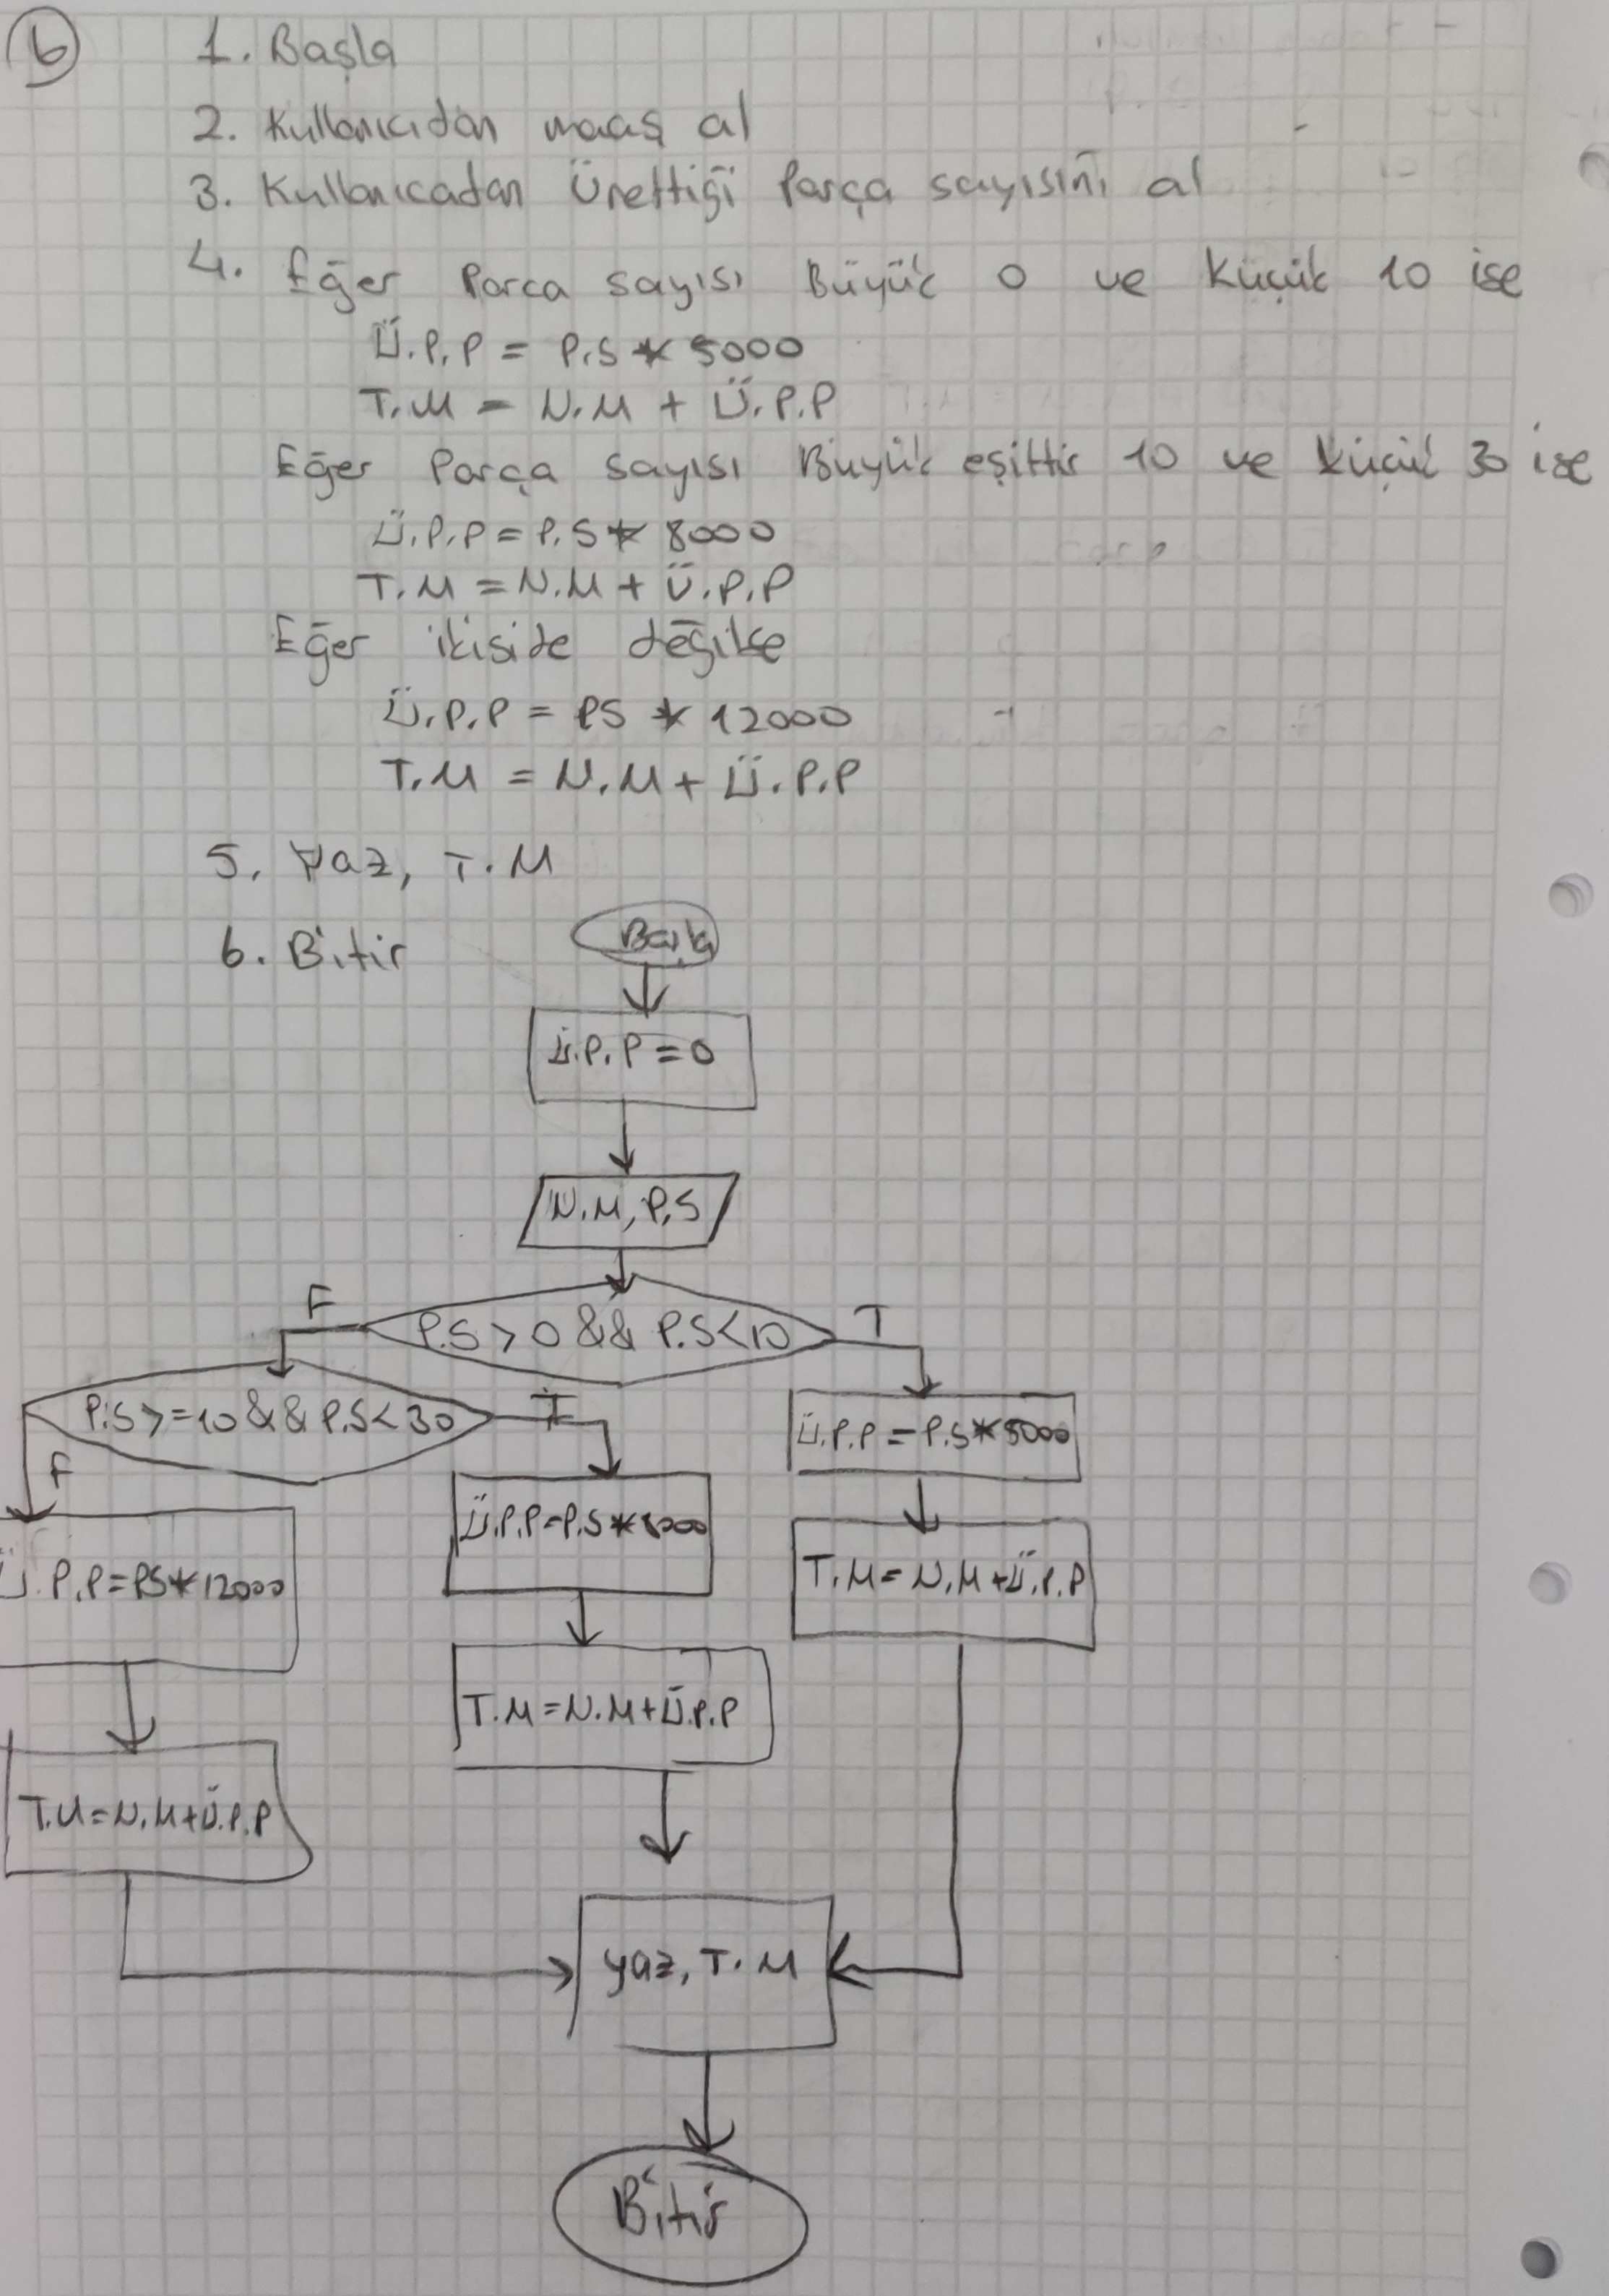 6
1. Başla
2. Kullanıcıdan maaş al
3. Kullanıcadan Ürettiği Parça sayısını al
4. Eğer Parca sayısı Büyük 0 ve Küçük 10 ise
Ü.P.P = P.S * 5000
T.M = N.M + Ü.P.P
Eğer Parça sayısı Büyük eşittir 10 ve küçük 30 ise
Ü.P.P = P.S * 8000
T.M = N.M + Ü.P.P
Eğer ikiside değilse
Ü.P.P = PS * 12000
T.M = N.M + Ü.P.P
5. Yaz, T.M
6. Bitir
Başla
Ü.P.P = 0
N.M, P.S
F
P.S > 0 && P.S < 10
T
P.S >= 10 && P.S < 30
T
F
Ü.P.P = P.S * 5000
Ü.P.P = P.S * 8000
T.M = N.M + Ü.P.P
Ü.P.P = PS * 12000
T.M = N.M + Ü.P.P
T.M = N.M + Ü.P.P
yaz, T.M
Bitir